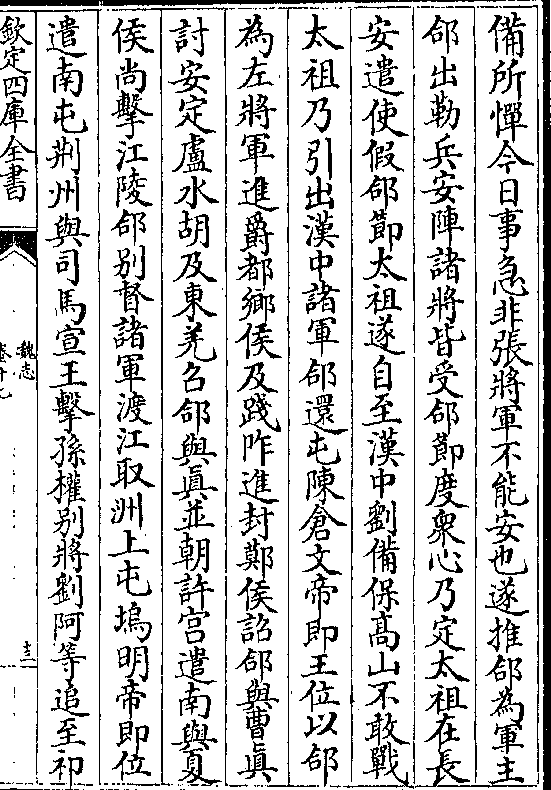 備所憚今日事急非張將軍不能安也遂推郃為軍主
郃出勒兵安陣諸將皆受郃節度衆心乃定太祖在長
安遣使假郃節太祖遂自至漢中劉備保髙山不敢戰
太祖乃引出漢中諸軍郃還屯陳倉文帝即王位以郃
為左將軍進爵都鄉侯及踐阼進封鄚侯詔郃與曹真
討安定盧水胡及東羌召郃與真並朝許宫遣南與夏
侯尚擊江陵郃别督諸軍渡江取洲上屯塢明帝即位
遣南屯荆州與司馬宣王擊孫權别將劉阿等追至祁
欽定四庫全書
魏志
卷十七
十三